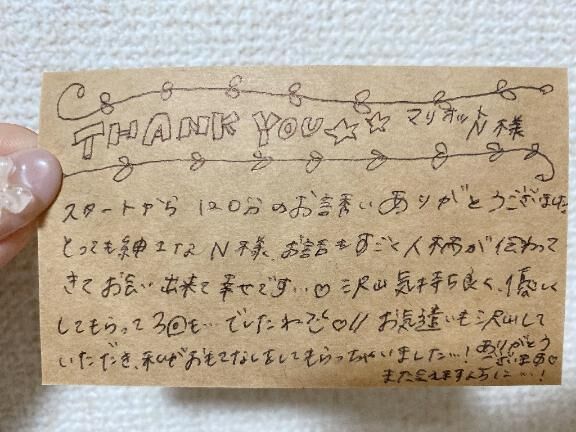 THANK YOU☆☆ マリオット N様
スタートから 120分のお誘いありがとうございました
とっても紳士なN様、お話もすごく人柄が伝わって
きてお会い出来て幸せです…♡ 沢山気持ち良く、優しく
してもらって3回も…でしたね♡!! お気遣いも沢山して
いただき、私がおもてなしをしてもらっちゃいました…!
ありがとう
ございます♡
また会えますように…!